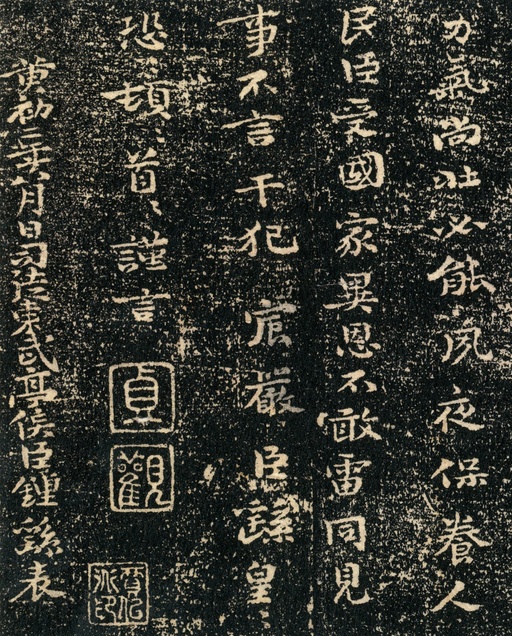 力氣尚壯必能夙夜保養人
民臣受國家異恩不敢雷同見
事不言干犯宸嚴臣繇皇〻
恐〻頓〻首〻謹言
黃初二年八月日司徒東武亭侯臣鍾繇表
貞
觀